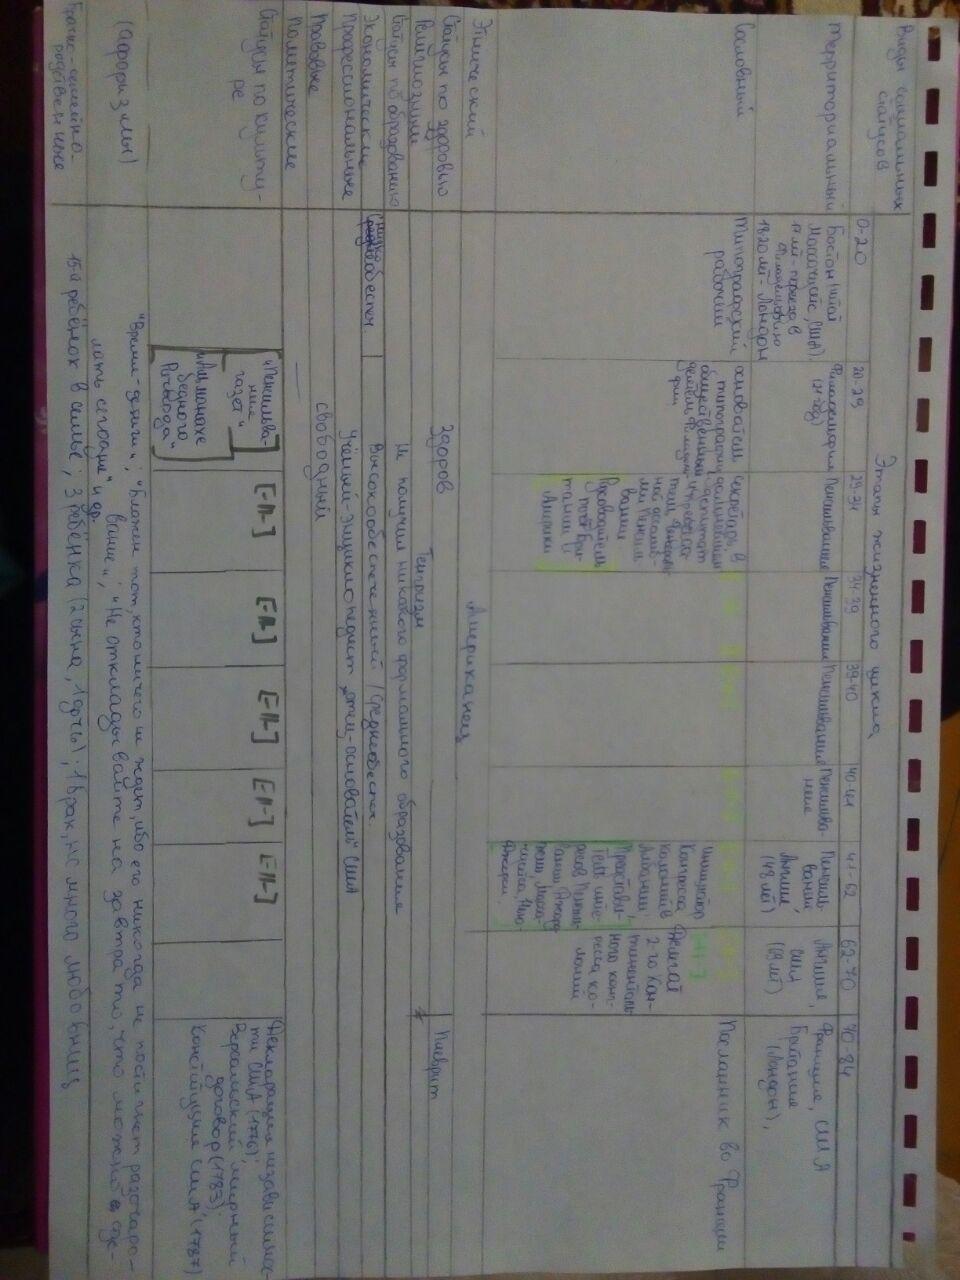 Виды социальных
статусов
Этапы жизненного цикла
0-20
20-29
29-34
34-39
39-40
40-41
41-62
62-70
70-84
Территориальный
Бостон (штат
Массачусетс, США)
17 лет - переезд в
Филадельфию
18-20 лет - Лондон
Филадельфия
(21 год)
Пенсильвания
Пенсильвания
Пенсильвания
Пенсильва-
ния
Пенсиль-
вания,
Англия
(48 лет)
Англия,
США
(69 лет)
Франция, США
Британия
(Лондон),
Сословный
Типографский
рабочий
основатель
типографии
общественный
деятель Филадель-
фии
секретарь, в
дальнейшем
депутат
ной ассамб-
леи Пенсиль-
вании
Руководитель
почт Бри-
тании и
Америки
инициатор
Конгресса
колоний в
Албании;
Представи-
тель инте-
ресов Пенсиль-
вании, Джор-
джии, Масса-
чусетса, Нью-
Джерси.
[-11-]
Делегат
2-го Кон-
тиненталь-
ного конг-
ресса ко-
лоний
Посланник во Франции
Этнический
Американец
Статусы по здоровью
Здоров
Плеврит
Религиозный
Тенгризм
Статусы по образованию
Не получил никакого формального образования
Экономические
низко
среднеобеспеч.
Высокообеспеченный / Среднеобеспеч.
Профессиональные
Учёный-энциклопедист „отец-основатель" США
Правовые
свободный
Политические
—
Статусы по культу-
ре
„Пенсильва-
ния
газет"
„Альманахе
бедного
Ричарда"
[-11-]
[-11-]
[-11-]
[-11-]
[-11-]
Декларация независимос-
ти США (1776);
Версальский мирный
договор (1783);
Конституция США (1787)
(афоризмы)
"Время - деньги"; "Блажен тот, кто ничего не ждет, ибо его никогда не постигнет разочаро-
вание"; "Не откладывайте на завтра то, что можно сде-
лать сегодня" и др.
Брачно-семейно-
родственные
15-й ребёнок в семье; 3 ребёнка (2 сына, 1 дочь); 1 брак, но много любовниц